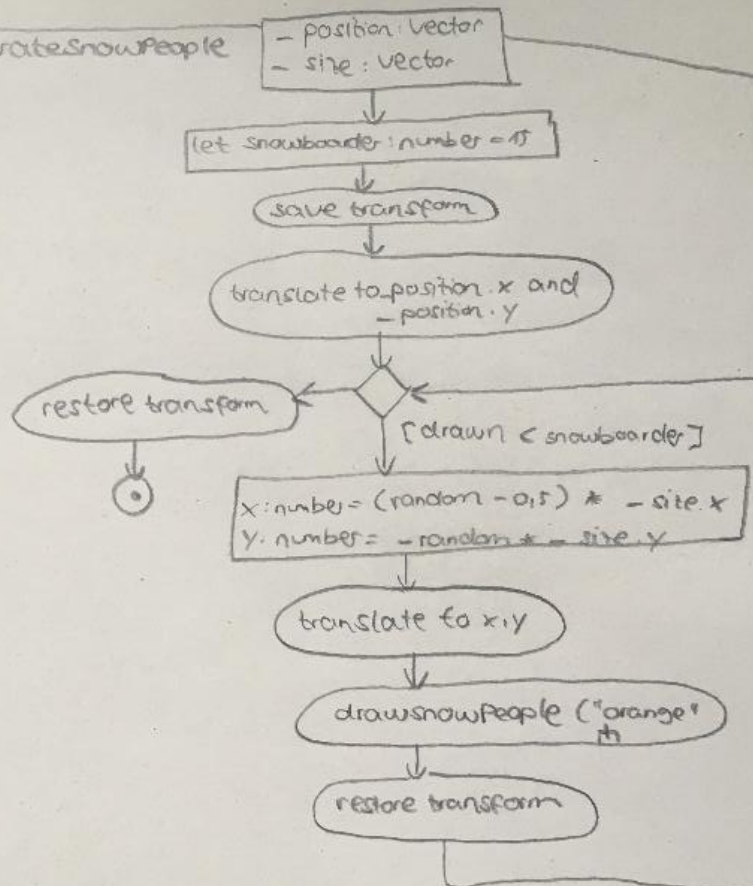 rateSnowPeople
- position: vector
- size: vector
let snowboarder: number = 15
save transform
translate to _position.x and
_position.y
restore transform
[drawn < snowboarder]
x: number = (random - 0,5) * _size.x
y: number = - random * _size.y
translate to x,y
drawSnowPeople ("orange"
restore transform